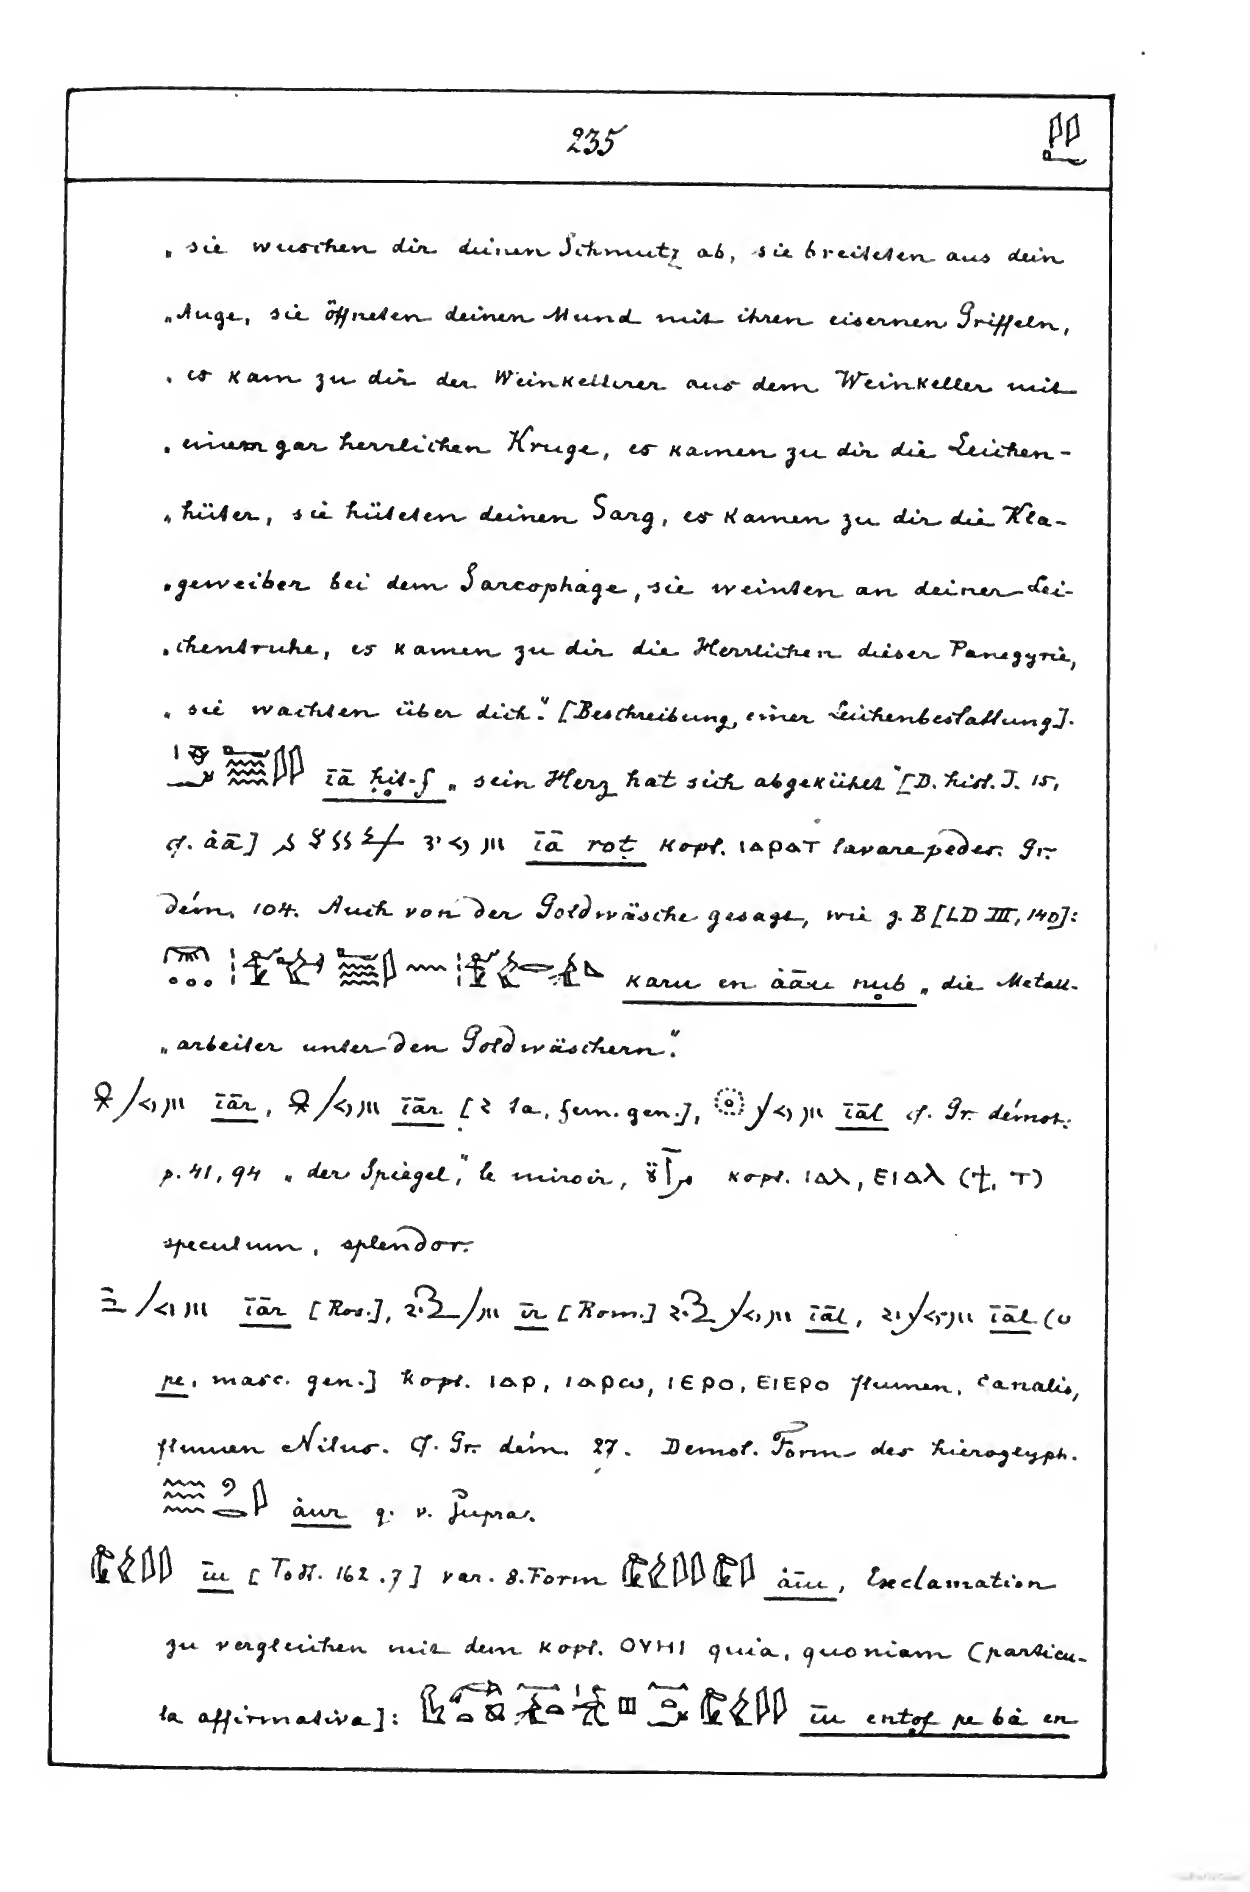 235
„sie wuschen dir deinen Schmutz ab, sie breiteten aus dein
„Auge, sie öffneten deinen Mund mit ihren eisernen Griffeln,
„es kam zu dir der Weinkellerer aus dem Weinkeller mit
„einem gar herrlichen Kruge, es kamen zu dir die Leichen-
„hüter, sie hüteten deinen Sarg, es kamen zu dir die Kla-
„geweiber bei dem Sarcophage, sie weinten an deiner Lei-
„chentruhe, es kamen zu dir die Herrlichen dieser Panegyrie,
„sie wachten über dich.“ [Beschreibung einer Leichenbestattung].
īā ḥit-f „sein Herz hat sich abgekühlt“ [D. hist. I. 15,
cf. àā] īā roṭ Kopt. ⲓⲁⲣⲁⲧ lavare pedes. Gr.
dém. 104. Auch von der Goldwäsche gesagt, wie z. B [LD III, 140]:
karu en àāu nub „die Metall-
„arbeiter unter den Goldwäschern“.
īār, īār [2 ta, fem. gen.], īāl cf. Gr. démot.
p. 41, 94 „der Spiegel,“ le miroir, kopt. ⲓⲁⲗ, ⲉⲓⲁⲗ (ϯ, ⲧ)
speculum, splendor.
īār [Ros.], īr [Rom.] īāl, īāl (u
pe, masc. gen.] Kopt. ⲓⲁⲣ, ⲓⲁⲣⲱ, ⲓⲉⲣⲟ, ⲉⲓⲉⲣⲟ flumen, canalis,
flumen Nilus. Cf. Gr. dém. 27. Demot. Form des hieroglyph.
àur q. v. supra.
īu [Todt. 162.7] var. d. Form àīu, Exclamation
zu vergleichen mit dem kopt. ⲟⲩⲏⲓ quia, quoniam (particu-
la affirmativa]: īu entof pe bà en